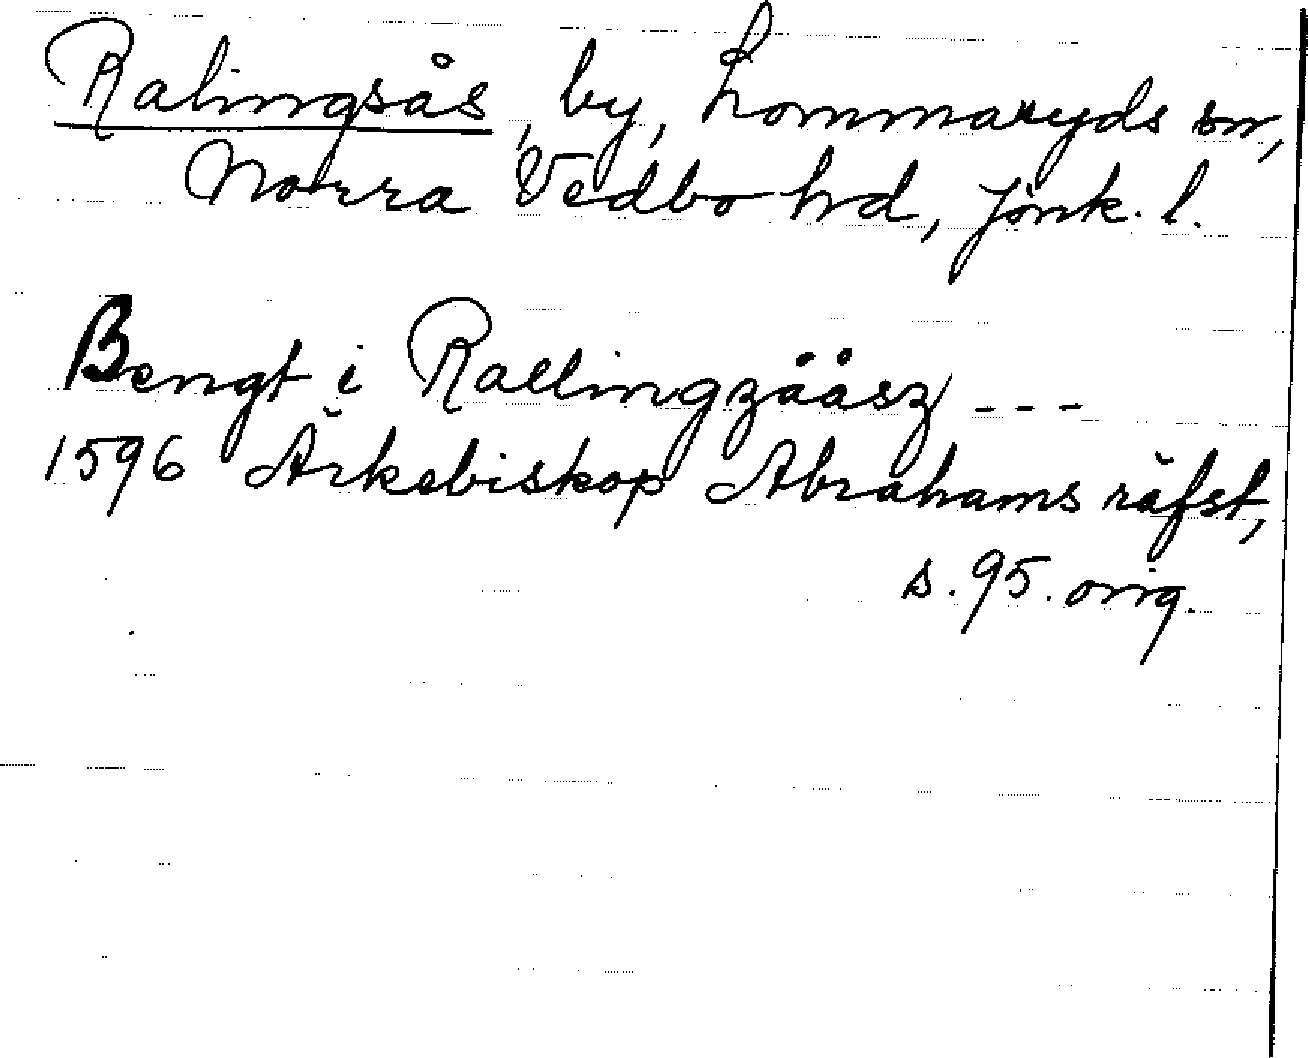 Ralingsås, by, Lommaryds sn,
Norra Vedbo hd, Jönk. l.
Bengt i Rallingzååsz ---
1596 Ärkebiskop Abrahams räfst,
s. 95. orig.